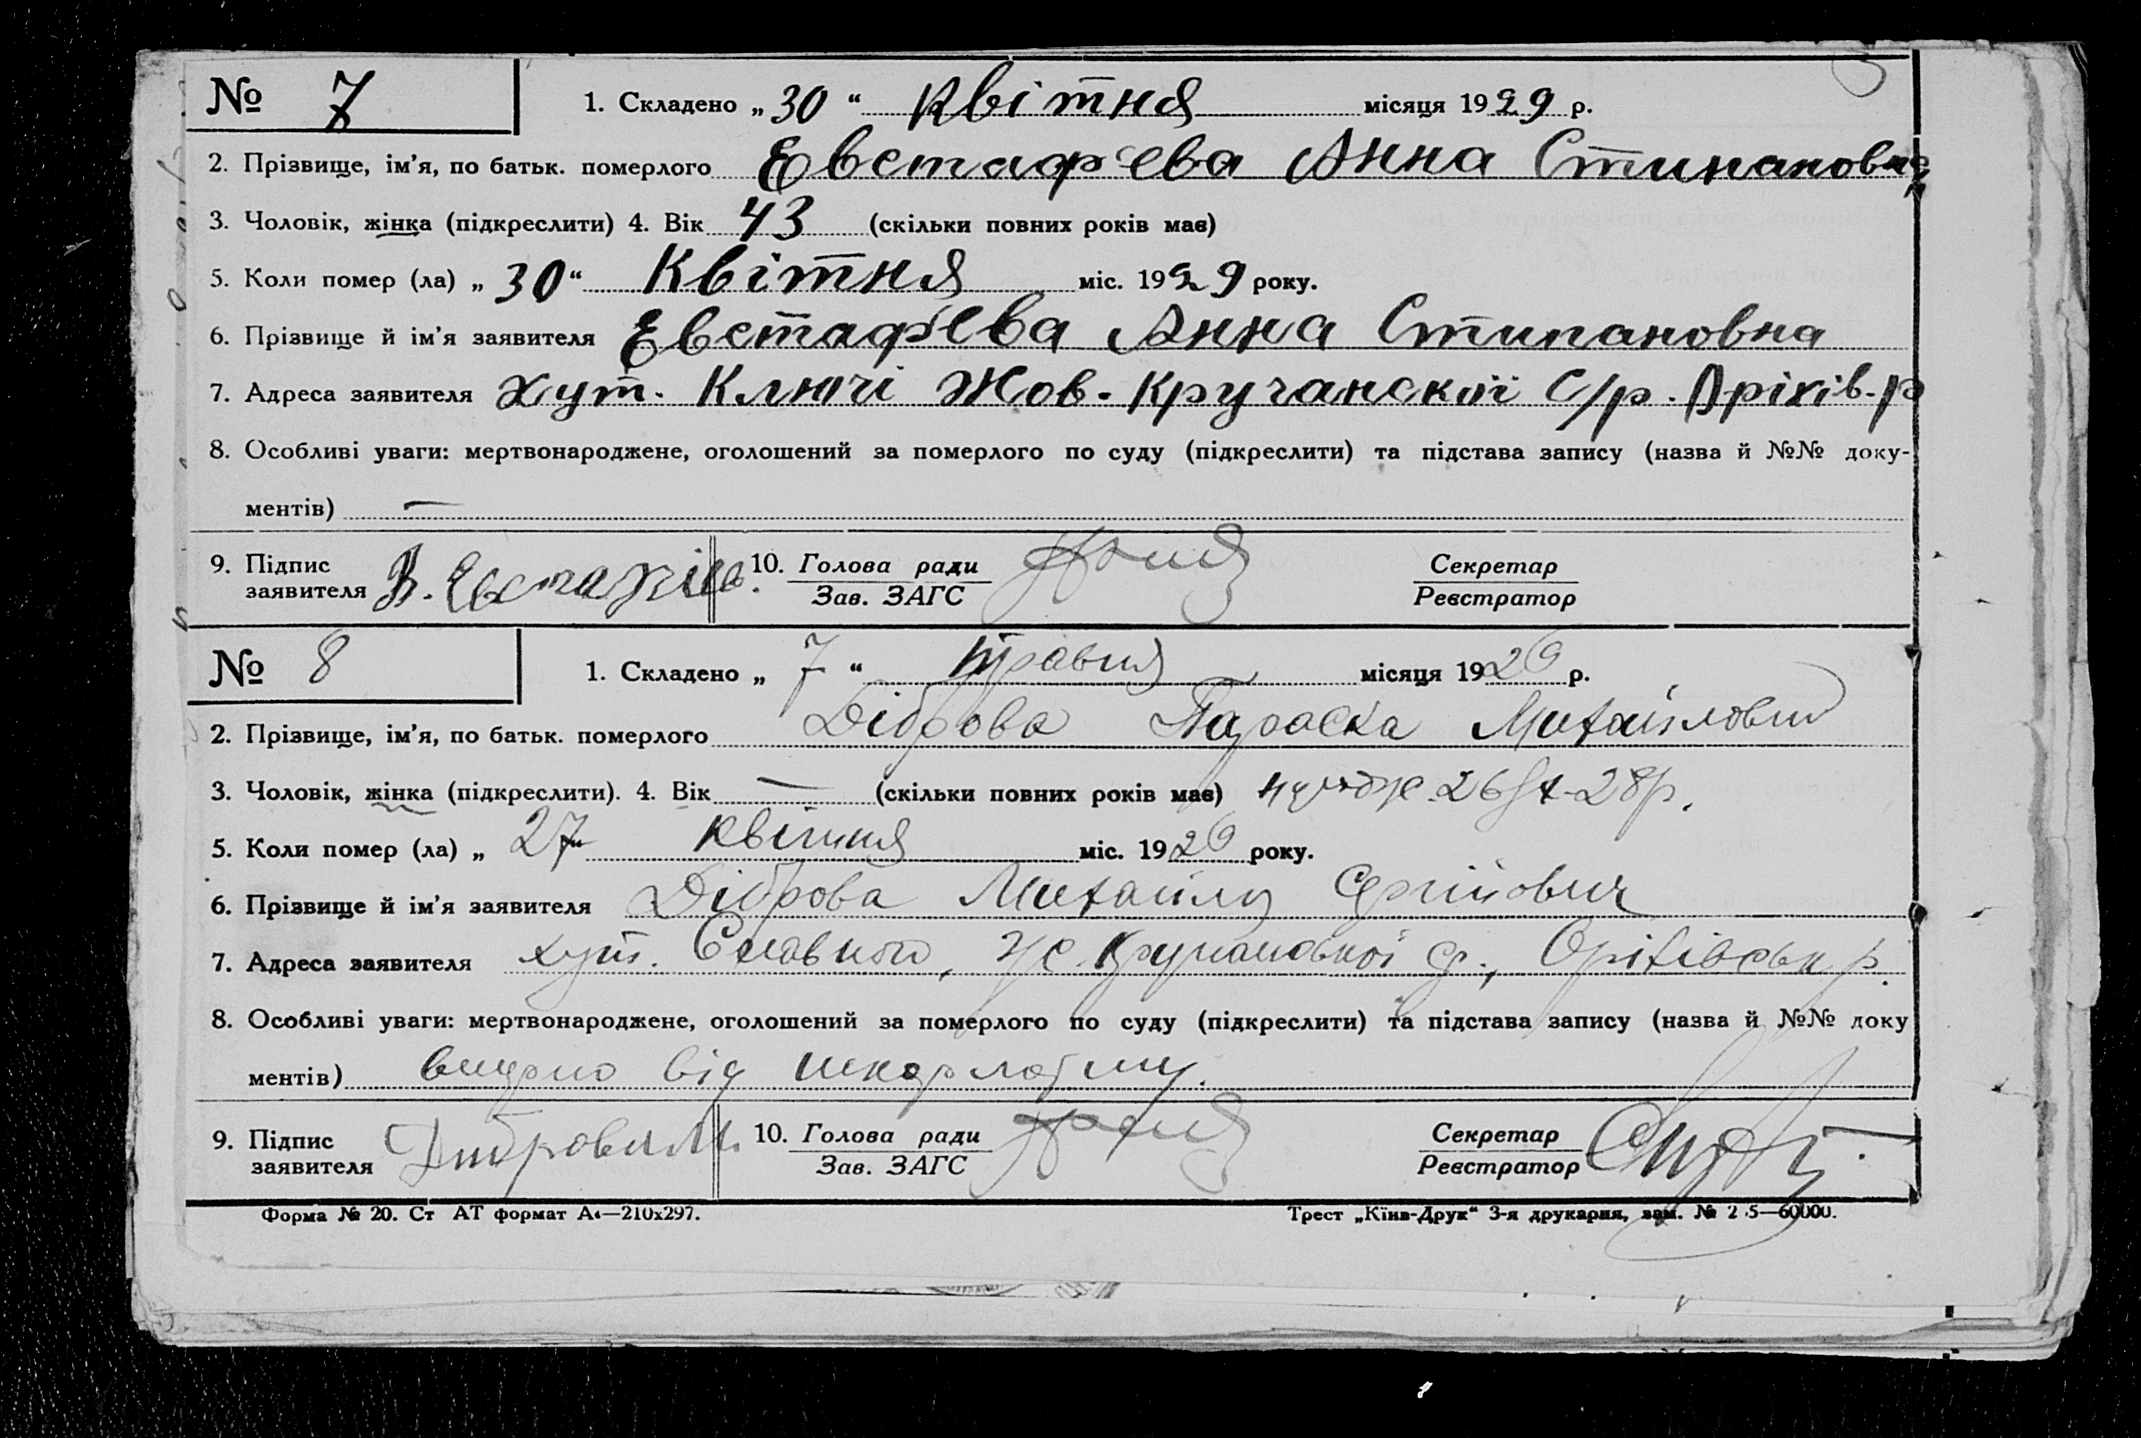 № 7 1. Складено „ 30 “ Квітня місяця 1929 р.
2. Прізвище, ім’я, по батьк. померлого Евстафʼєва Анна Стипановна
3. Чоловік, жінка (підкреслити) 4. Вік 43 (скільки повних років має)
5. Коли помер (ла) „ 30 “ Квітня міс. 1929 року.
6. Прізвище й ім’я заявителя Евстафʼєва Анна Стипановна
7. Адреса заявителя Хут. Ключі Жов-Кручанскої С/р. Оріхів-р
8. Особливі уваги: мертвонароджене, оголошений за померлого по суду (підкреслити) та підстава запису (назва й №№ доку-
ментів) —
9. Підпис 10. Голова ради Секретар
заявителя В. Зав. ЗАГС Реєстратор
№ 8 1. Складено „ 7 “ травня місяця 1929 р.
2. Прізвище, ім’я, по батьк. померлого Діброва Параска Михайловни
3. Чоловік, жінка (підкреслити). 4. Вік — (скільки повних років має) 28р.
5. Коли помер (ла) „ 27 “ квітня міс. 1929 року.
6. Прізвище й ім’я заявителя Діброва Михайло Сергійович
7. Адреса заявителя хут. Кручанської с/р., Оріхівськ р.
8. Особливі уваги: мертвонароджене, оголошений за померлого по суду (підкреслити) та підстава запису (назва й №№ доку
ментів) вмерло від шкарлатини.
9. Підпис 10. Голова ради Секретар
заявителя Зав. ЗАГС Реєстратор
Форма № 20. Ст АТ формат А4—210х297. Трест „Київ-Друк“ 3-я друкарня, зам. № 60000.